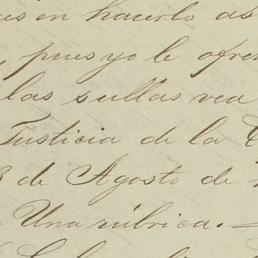 en hacerlo as
, pues yo le ofre
las sullas vea
Justicia de la
de Agosto de
Una rúbrica.